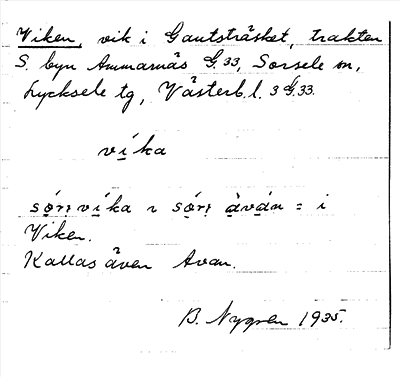 Viken, vik i Gautsträsket, trakten
S. byn Ammarnäs G.33, Sorsele sn,
Lycksele tg, Västerb.l. 3 G.33.
víka
i
Viken.
Kallas även Avan.
B. Nygren 1935.